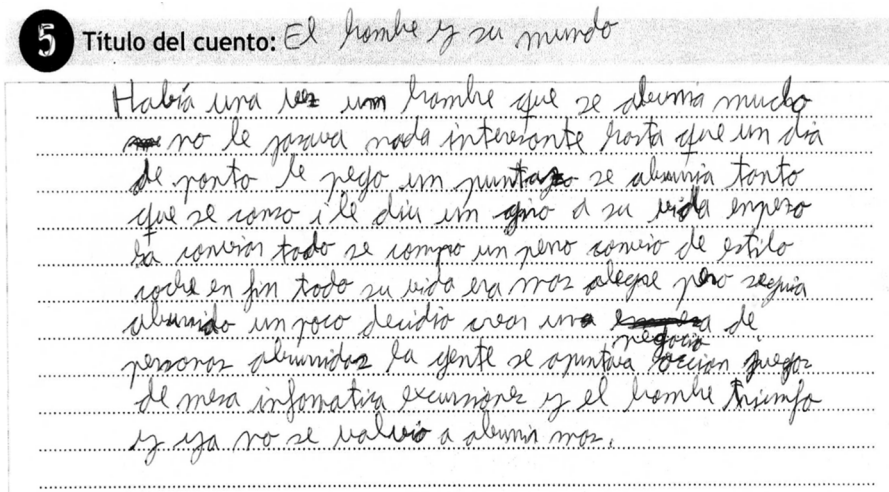 5 Título del cuento: El hombre y su mundo
Había una vez um hombre que se aburria mucho
no le pasava nada interesante hasta que un dia
de ponto le pego um puntazo se aburria tanto
que se canso i le diu um giro a su vida empezo
ha conviar todo se compro un pero convio de estilo
coche en fin todo su vida era mas alegre pero seguia
aburrido un poco decidio crear una de
negocio
personas aburridas la gente se apuntava juegos
de mesa infomatica excursiones y el hombre triumfo
y ya no se valvio a aburrir mas.